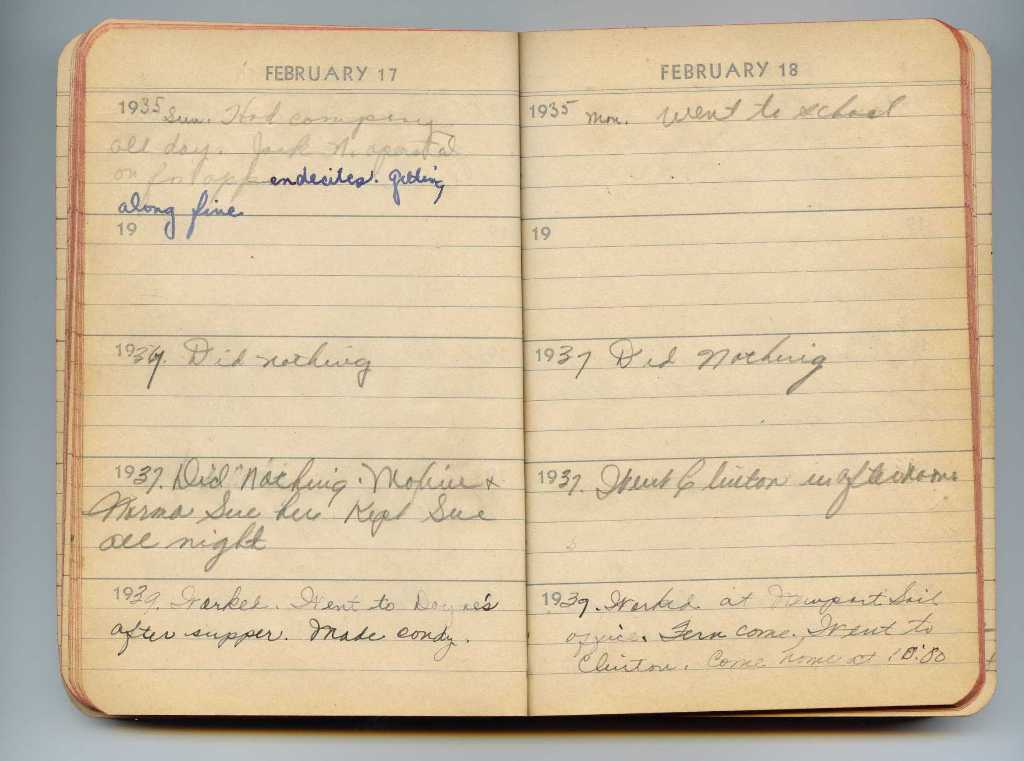 FEBRUARY 17
1935 Sun. Had company
all day. Jack N. operated
on for appendecites. getting
along fine
19
1937. Did nothing
1937. Did "Nothing. Maxine +
Norma Sue here Kept Sue
all night
1939. Worked. Went to Doyne's
after supper. Made candy.
FEBRUARY 18
1935 Mon. Went to school
19
1937 Did Nothing
1937. Went Clinton in afternoon
1939. Worked at Newport Soil
office. Fern come. Went to
Clinton. Come home at 10:80